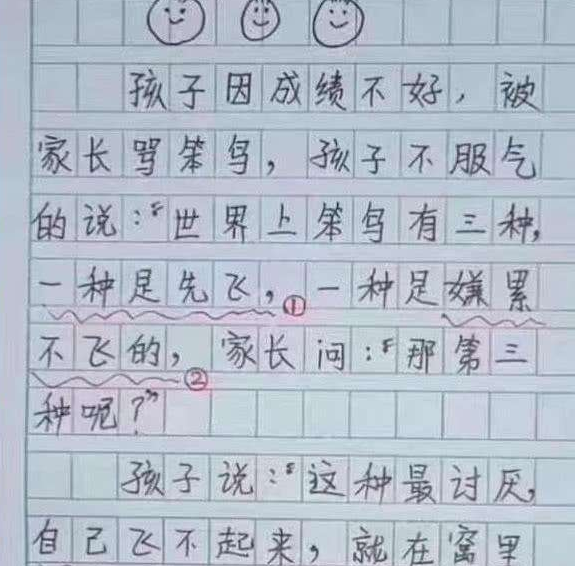 孩子因成绩不好，被
家长骂笨鸟，孩子不服气
的说：“世界上笨鸟有三种，
一种是先飞，①一种是嫌累
不飞的，②家长问：“那第三
种呢？”
孩子说：“这种最讨厌，
自己飞不起来，就在窝里